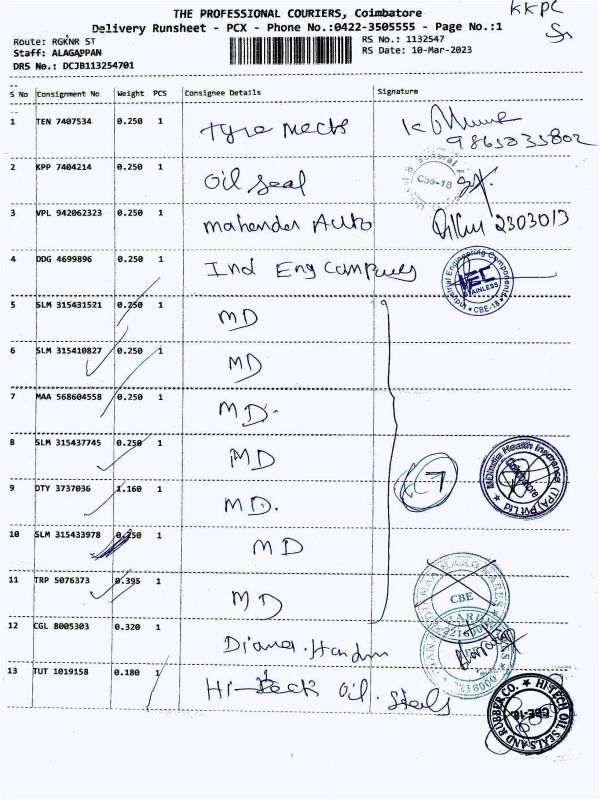 THE PROFESSIONAL COURIERS, Coimbatore
KKPC
Delivery Runsheet - PCX - Phone No.:0422-3505555 - Page No.:1
Route: RGKNR ST
RS No.: 1132547
Staff: ALAGAPPAN
RS Date: 10-Mar-2023
DRS No.: DCJB113254701
S No Consignment No Weight PCS Consignee Details Signature
1 TEN 7407534 0.250 1 Tyre Mecks
9865035802
2 KPP 7404214 0.250 1 Oil Seal
CBE-18
3 VPL 942062323 0.250 1 Mahender Auto 2303013
4 DDG 4699896 0.250 1 Ind Eng
Industrial Engineering Components
IEC
STAINLESS
CBE-18
5 SLM 315431521 0.250 1 MD
6 SLM 315410827 0.250 1 MD
7 MAA 568604558 0.250 1 MD.
8 SLM 315437745 0.250 1 MD
7
MDIndia Health Insurance (TPA) Pvt Ltd
Coimbatore
9 DTY 3737036 1.160 1 MD.
10 SLM 315433978 0.250 1 MD
11 TRP 5076373 0.395 1 MD
CBE
12 CGL 8005303 0.320 1 Diana
13 TUT 1019158 0.180 1 Hi-Teck Oil. Seals
HI-TECH OIL SEALS AND RUBBER CO.
CBE-18